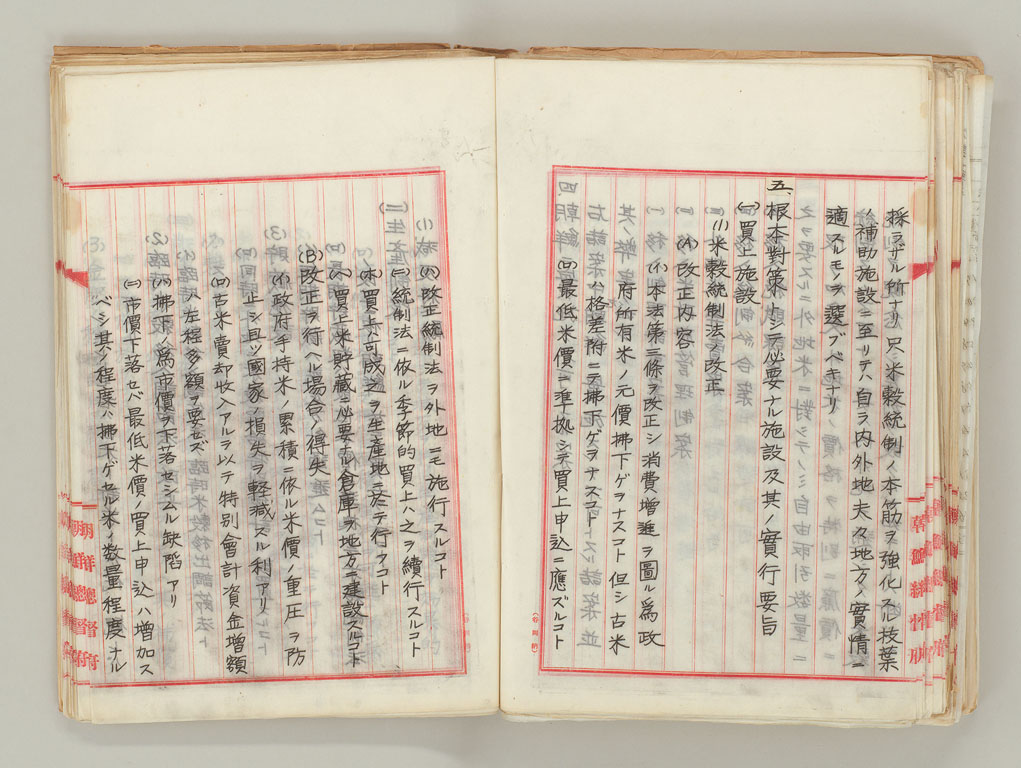 採ラザル所ナリ只米穀統制ノ本筋ヲ強化スル枝葉
的補助施設ニ至リテハ自ラ内外地夫々地方ノ實情ニ
適スルモノヲ選ブベキナリ
五、根本對策トシテ必要ナル施設及其ノ實行要旨
(一)買上施設
(1)米穀統制法改正
(A)改正内容
(イ)本法第三條ヲ改正シ消費増進ヲ圖ル爲政
府所有米ノ元價拂下ゲヲナスコト但シ古米
ハ格差附ニテ拂下ゲヲナスコト
(ロ)最低米價ニ準拠シテ買上申込ニ應ズルコト
(ハ)改正統制法ヲ外地ニモ施行スルコト
(ニ)統制法ニ依ル季節的買上ハ之ヲ續行スルコト
(ホ)買上ハ可成之ヲ生産地ニ於テ行フコト
(ヘ)買上米貯藏ニ必要ナル倉庫ヲ地方ニ建設スルコト
(B)改正ヲ行ヘル場合ノ得失
(イ)政府手持米ノ累積ニ依ル米價ノ重圧ヲ防
止シ且ツ國家ノ損失ヲ軽減スル利アリ
(ロ)古米賣却收入アルヲ以テ特別會計資金増額
ハ左程多額ヲ要セズ
(ハ)拂下ノ爲市價ヲ下落セシムル缺陷アリ
(ニ)市價下落セバ最低米價ノ買上申込ハ増加ス
ベシ其ノ程度ハ拂下ゲセル米ノ数量程度ナル
朝鮮總督府
朝鮮總督府